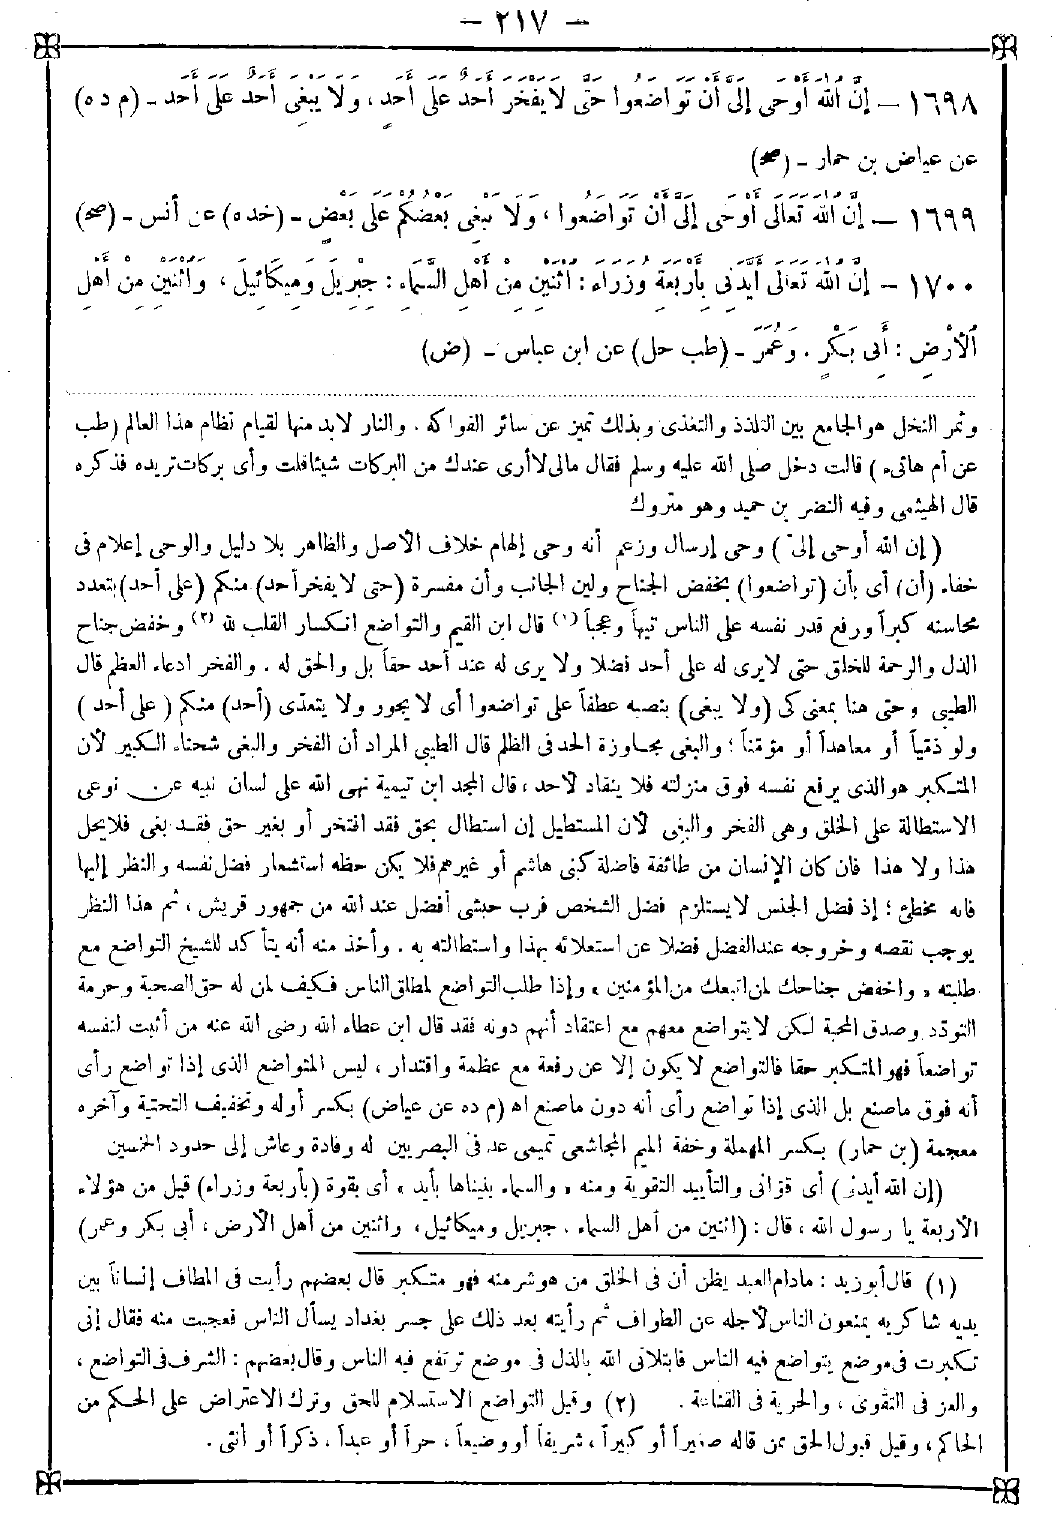 — ٢١٧ —
١٦٩٨ — إِنَّ اللَّهَ أَوْحَى إِلَىَّ أَنْ تَوَاضَعُوا حَتَّى لَا يَفْخَرَ أَحَدٌ عَلَى أَحَدٍ ، وَلَا يَبْغِىَ أَحَدٌ عَلَى أَحَدٍ — (م د ه)
عن عياض بن حمار — (صح)
١٦٩٩ — إِنَّ اللَّهَ تَعَالَى أَوْحَى إِلَىَّ أَنْ تَوَاضَعُوا ، وَلَا يَبْغِى بَعْضُكُمْ عَلَى بَعْضٍ — (خد ه) عن أنس — (صح)
١٧٠٠ — إِنَّ اللَّهَ تَعَالَى أَيَّدَنِى بِأَرْبَعَةِ وُزَرَاءَ : اثْنَيْنِ مِنْ أَهْلِ السَّمَاءِ : جِبْرِيلَ وَمِيكَائِيلَ ، وَاثْنَيْنِ مِنْ أَهْلِ
الْأَرْضِ : أَبِى بَكْرٍ . وَعُمَرَ — (طب حل) عن ابن عباس — (ض)
وثمر النخل هو الجامع بين التلذذ والتغذى وبذلك تميز عن سائر الفواكه . والنار لابد منها لقيام نظام هذا العالم (طب
عن أم هانىء) قالت دخل صلى الله عليه وسلم فقال مالى لا أرى عندك من البركات شيئا فقلت وأى بركات تريده فذكره
قال الهيثمى وفيه النضر بن حميد وهو متروك
(إن الله أوحى إلىّ) وحى إرسال وزعم أنه وحى إلهام خلاف الأصل والظاهر بلا دليل والوحى إعلام فى
خفاء (أن) أى بأن (تواضعوا) بخفض الجناح ولين الجانب وأن مفسرة (حتى لا يفخر أحد) منكم (على أحد) بتعدد
محاسنه كبراً ورفع قدر نفسه على الناس تيهاً وعجباً (١) قال ابن القيم والتواضع انكسار القلب لله (٢) وخفض جناح
الذل والرحمة للخلق حتى لا يرى له على أحد فضلا ولا يرى له عند أحد حقاً بل والحق له . والفخر ادعاء العظم قال
الطيبى وحتى هنا بمعنى كى (ولا يبغى) بنصبه عطفاً على تواضعوا أى لا يجور ولا يتعدّى (أحد) منكم (على أحد)
ولو ذمّياً أو معاهداً أو مؤمّناً ؛ والبغى مجاوزة الحد فى الظلم قال الطيبى المراد أن الفخر والبغى شحناء الكبير لأن
المتكبر هو الذى يرفع نفسه فوق منزلته فلا ينقاد لأحد ، قال المجد ابن تيمية نهى الله على لسان نبيه عن نوعى
الاستطالة على الخلق وهى الفخر والبغى لأن المستطيل إن استطال بحق فقد افتخر أو بغير حق فقد بغى فلا يحل
هذا ولا هذا فان كان الإنسان من طائفة فاضلة كبنى هاشم أو غيرهم فلا يكن حظه استشعار فضل نفسه والنظر إليها
فانه مخطئ ؛ إذ فضل الجنس لا يستلزم فضل الشخص فرب حبشى أفضل عند الله من جمهور قريش ، ثم هذا النظر
يوجب نقصه وخروجه عند الفضل فضلا عن استعلائه بهذا واستطالته به . وأخذ منه أنه يتأكد للشيخ التواضع مع
طلبته « واخفض جناحك لمن اتبعك من المؤمنين » وإذا طلب التواضع لمطلق الناس فكيف لمن له حق الصحبة وحرمة
التودّد وصدق المحبة لكن لا يتواضع معهم مع اعتقاد أنهم دونه فقد قال ابن عطاء الله رضى الله عنه من أثبت لنفسه
تواضعاً فهو المتكبر حقا فالتواضع لا يكون إلا عن رفعة مع عظمة واقتدار ، ليس المتواضع الذى إذا تواضع رأى
أنه فوق ماصنع بل الذى إذا تواضع رأى أنه دون ماصنع اه (م ده عن عياض) بكسر أوله وتخفيف التحتية وآخره
معجمة (بن حمار) بكسر المهملة وخفة الميم المجاشعى تميمى عد فى البصريين له وفادة وعاش إلى حدود الخمسين
(إن الله أيدنى) أى قوّانى والتأييد التقوية ومنه « والسماء بنيناها بأيد » أى بقوة (بأربعة وزراء) قيل من هؤلاء
الأربعة يا رسول الله ، قال : (اثنين من أهل السماء . جبريل وميكائيل ، واثنين من أهل الأرض ، أبى بكر وعمر)
(١) قال أبو زيد : مادام العبد يظن أن فى الخلق من هو شر منه فهو متكبر قال بعضهم رأيت فى المطاف إنساناً بين
يديه شاكريه يمنعون الناس لأجله عن الطواف ثم رأيته بعد ذلك على جسر بغداد يسأل الناس فعجبت منه فقال إنى
تكبرت فى موضع يتواضع فيه الناس فابتلانى الله بالذل فى موضع ترتفع فيه الناس وقال بعضهم : الشرف فى التواضع ،
والعز فى التقوى ، والحرية فى القناعة . (٢) وقيل التواضع الاستسلام للحق وترك الاعتراض على الحكم من
الحاكم ، وقيل قبول الحق ممن قاله صغيراً أو كبيراً ، شريفاً أو وضيعاً ، حراً أو عبداً ، ذكراً أو أنثى .